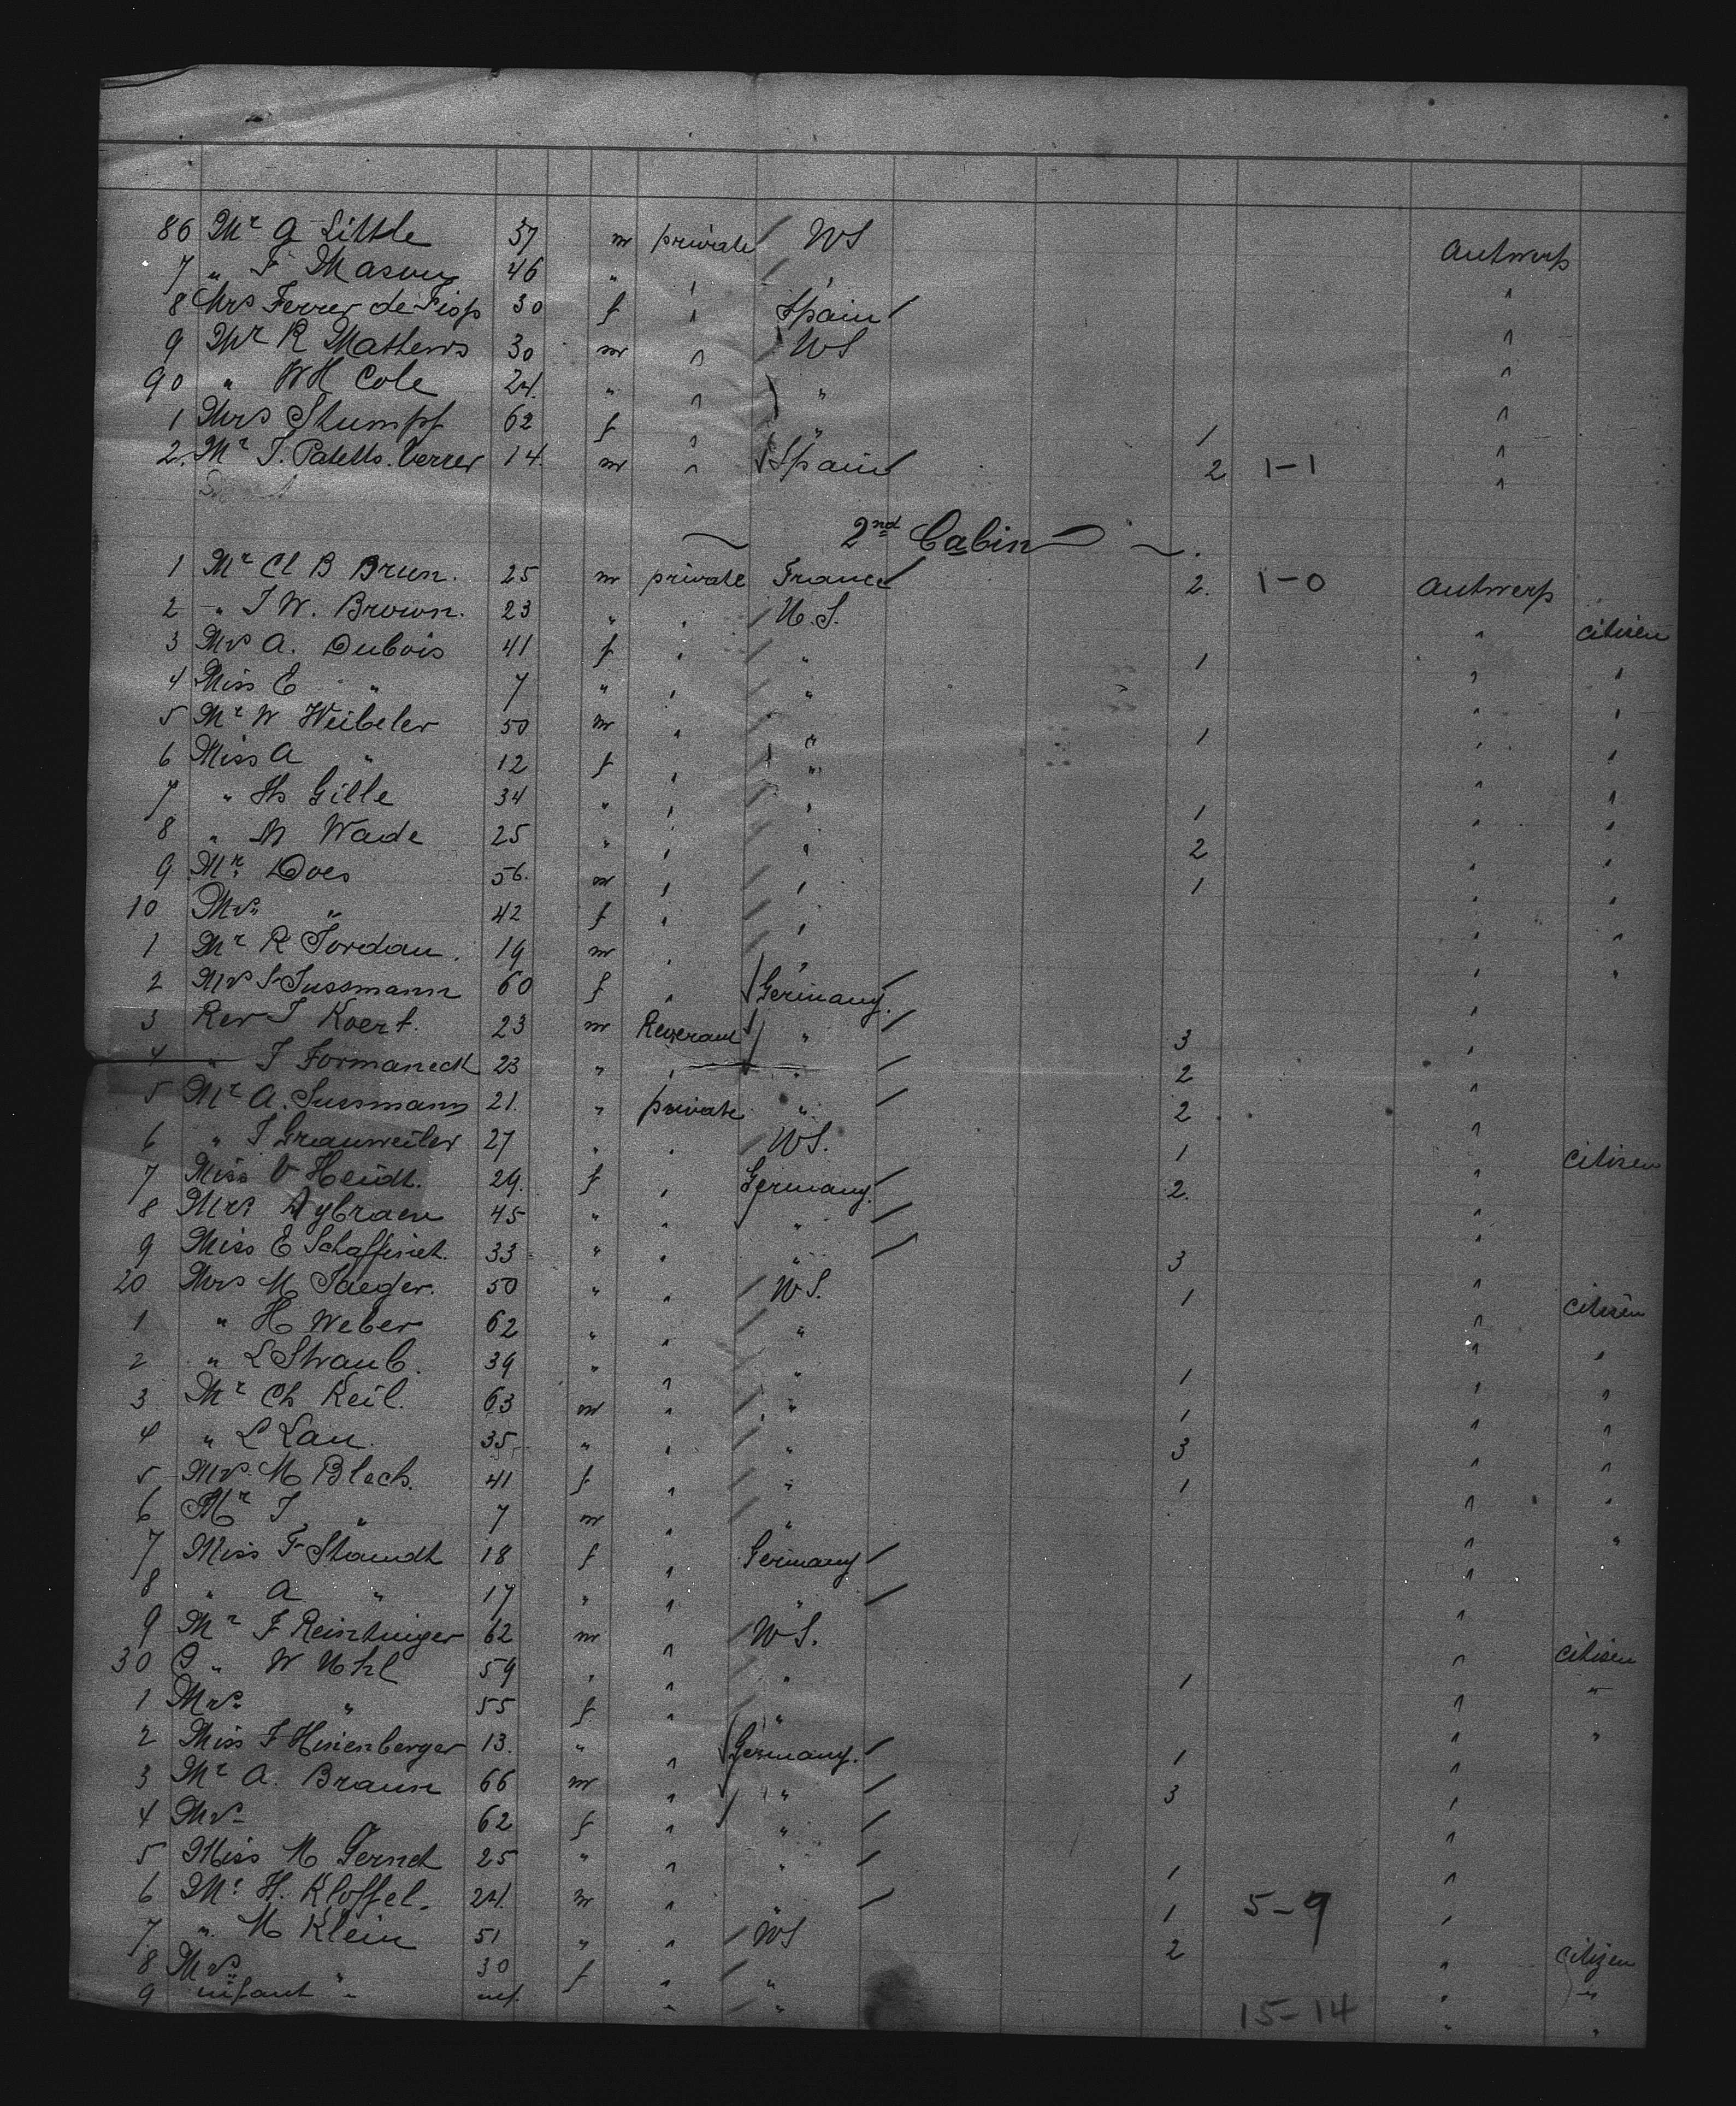 86 Mr A Little 37 m private / US Antwerp
7 " F Mason 46 " " / "
8 Mrs Ferrer de 30 f " Spain / "
9 Mr R Mathews 30 m " / US "
90 " WH Cole 24 " " / " "
1 Mrs Stumpf 62 f " " 1 "
2 Mr J. Ferrer 14 m " Spain / 2 1-1 "
2nd Cabin
1 Mr Cl B Brun. 25 m private France / 2. 1-0 Antwerp
2 " J W. Brown. 23 " " / U.S. " citisen
3 Mrs A. Dubois 41 f " / " 1 " "
4 Miss E " 7 " " / " " "
5 Mr W Weibeler 50 m " / " 1 " "
6 Miss A " 12 f " / " " "
7 " Gille 34 " " / " 1 " "
8 " M Wade 25 " " / " 2 " "
9 Mr. Does 56. m " / " 1 " "
10 Mrs " 42 f " / " " "
1 Mr R Jordan. 19 m " / " " "
2 Mrs S Sussmann 60 f " Germany. / "
3 Rev J Koert. 23 m Reverand " / 3 "
4 " J Formaneck 23 " " " / 2 "
5 Mr A. Sussmann 21. " private " / 2 "
6 " J Grauweiler 27 " " US. 1 " citisen
7 Miss V Heidt. 29. f " Germany. / 2. "
8 Mrs 45 " " " / "
9 Miss E 33 " " " / 3 "
20 Mrs M Jaeger. 50 " " / US. 1 " citisen
1 " H Weber 62 " " / " " "
2 " L Straub. 39 " " / " 1 " "
3 Mr Ch Keil. 63 m " / " 1 " "
4 " L Lau. 35 " " / " 3 " "
5 Mrs M Blech. 41 f " / " 1 " "
6 Mr J " 7 m " / " " "
7 Miss F Staudt 18 f " Germany / "
8 " A " 17 " " " / "
9 Mr F 62 m " / US. " citisen
30 " W Uhl 59 " " / " 1 " "
1 Mrs " 55 f " / " " "
2 Miss F Hinenberger 13. " " Germany. / 1 "
3 Mr A. Braun 66 m " " / 3 "
4 Mrs " 62 f " " / "
5 Miss M Gernet 25 " " " / 1 "
6 Mr H. Kloffel. 24. m " " / 1 5-9 "
7. " M Klein 51 " " / US 2 " citizen
8 Mrs " 30 f " / " " "
9 infant " inf. " / " 15-14 " "